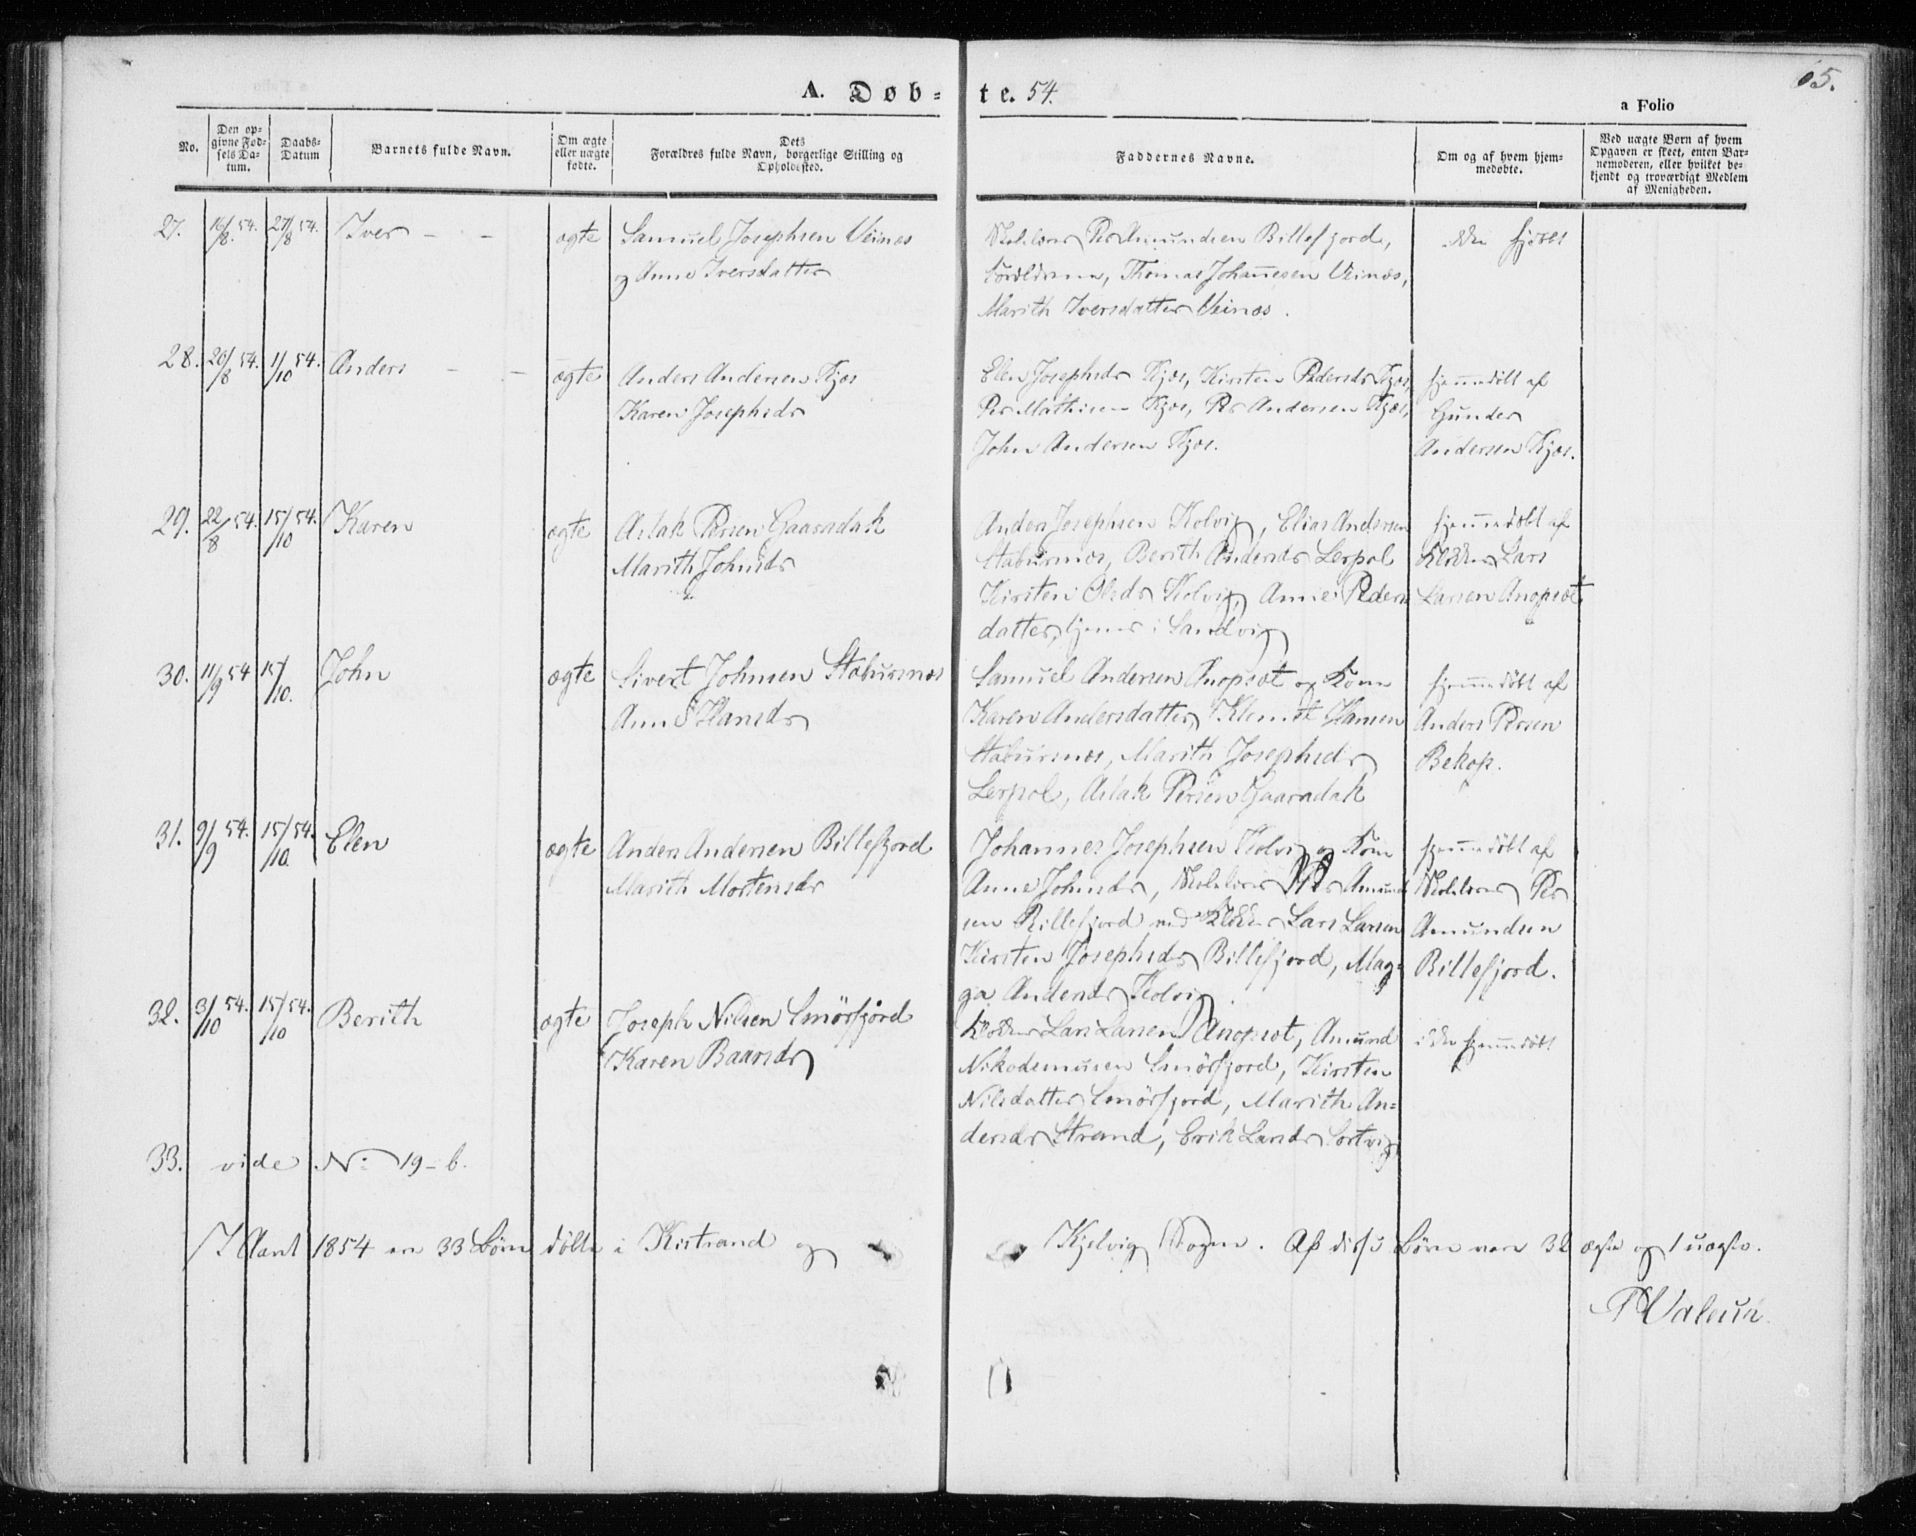 A. Døb-te. 54.
65.
a Folio
No.
Den opgivne Fødsels Datum.
Daabs-Datum
Barnets fulde Navn.
Om ægte eller uægte fødte.
Dets Forældres fulde Navn, borgerlige Stilling og Opholdssted.
Faddernes Navne.
Om og af hvem hjemmedøbte.
Ved uægte Børn af hvem Opgaven er skeet, enten Barnemoderen, eller hvilket bekjendt og troværdigt Medlem af Menigheden.
27. 16/8 54. 27/8 54. Iver - - ægte
Samuel Josephsen Veines
og Anne Iversdatter
Per Amundsen Billefjord,
Forældrene, Thomas Johannesen Veinæs,
Marith Iversdatter Veinæs.
28. 20/8 54. 1/10 54. Anders - - ægte
Anders Andersen Kjæs
Karen Josephsdr
Elen Josephsdr Kjæs, Kirsten Pedersdr Kjæs,
Per Mathisen Kjæs, Per Andersen Kjæs,
John Andersen Kjæs.
hjemmedöbt af
Gunder
Andersen Kjæs.
29. 22/8 54. 15/10 54. Karen ægte
Aslak Persen Gaaradak
Marith Johnsdr
Anders Josephsen Kolvig, Elias Andersen
Stabursnæs, Berith Andersdr Lerpol
Kirsten Olsdr Kolvig, Anne Peders
datter, tjener i Sandvig
hjemmedöbt af
Klokker Lars
Larsen Anopsæt
30. 11/9 54 15/10. John ægte
Sivert Johnsen Stabursnæs
Anne Hansdr
Samuel Andersen Anopsæt og Kone
Karen Andersdatter, Klemet Hansen
Stabursnæs, Marith Josephsdr
Lerpol, Aslak Persen Gaaradak
hjemmedöbt af
Anders Persen
Bekop.
31. 9/9 54. 15/10 54. Elen ægte
Anders Andersen Billefjord
Marith Mortensdr
Johannes Josephsen Kolvig og Kone
Anne Johnsdr, Per Amund
sen Billefjord ved Klokker Lars Larsen
Kirsten Josephsdr Billefjord, Mag-
ga Andersdr Kolvig.
hjemmedöbt af
Per
Amundsen
Billefjord.
32. 3/10 54. 15/10 54. Berith ægte
Joseph Nilsen Smörfjord
Karen Baarsdr
Klokker Lars Larsen Anopsæt, Amund
Nikodemusen Smörfjord, Kirsten
Nilsdatter Smörfjord, Marith An-
dersdr Strand, Erik Larsdr Sortvig
ikke hjemmedöbt
33. vide No 19-b.
I Aaret 1854 ere 33 Börn döbte i Kistrand og Kjelvig Sogne. Af disse Börn vare 32 ægte og 1 uægte.
P Valeur